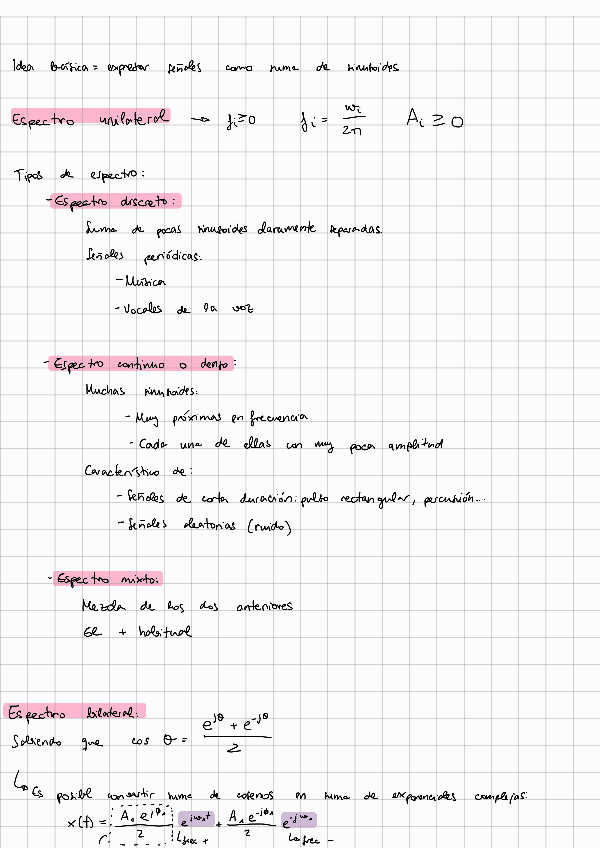 Idea básica = expresar señales como suma de sinusoides
Espectro unilateral → fi≥0 fi = wi/2π Ai ≥ 0
Tipos de espectro:
- Espectro discreto:
Suma de pocas sinusoides claramente separadas
Señales periódicas:
- Música
- Vocales de la voz
- Espectro continuo o denso:
Muchas sinusoides:
- Muy próximas en frecuencia
- Cada una de ellas con muy poca amplitud
Característico de:
- Señales de corta duración: pulso rectangular, percusión...
- Señales aleatorias (ruido)
- Espectro mixto:
Mezcla de los dos anteriores
El + habitual
Espectro bilateral:
Sabiendo que cos θ = (e^jθ + e^-jθ)/2
↳ Es posible convertir suma de cosenos en suma de exponenciales complejas:
x(t) = (A₁ e^jϕ₁)/2 e^jw₁t + (A₁ e^-jϕ₁)/2 e^-jw₁
↳ frec + ↳ frec -